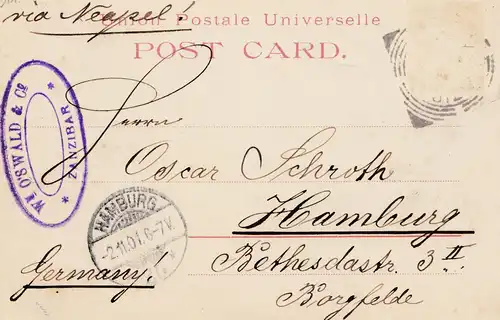 via Neapel!
Union Postale Universelle
POST CARD.
Wm OSWALD & Co
* ZANZIBAR *
Herrn
Oscar Schroth
Hamburg
HAMBURG
-2.11.01.6-7V.
Germany!
Bethesdastr. 3 II
Borgfelde